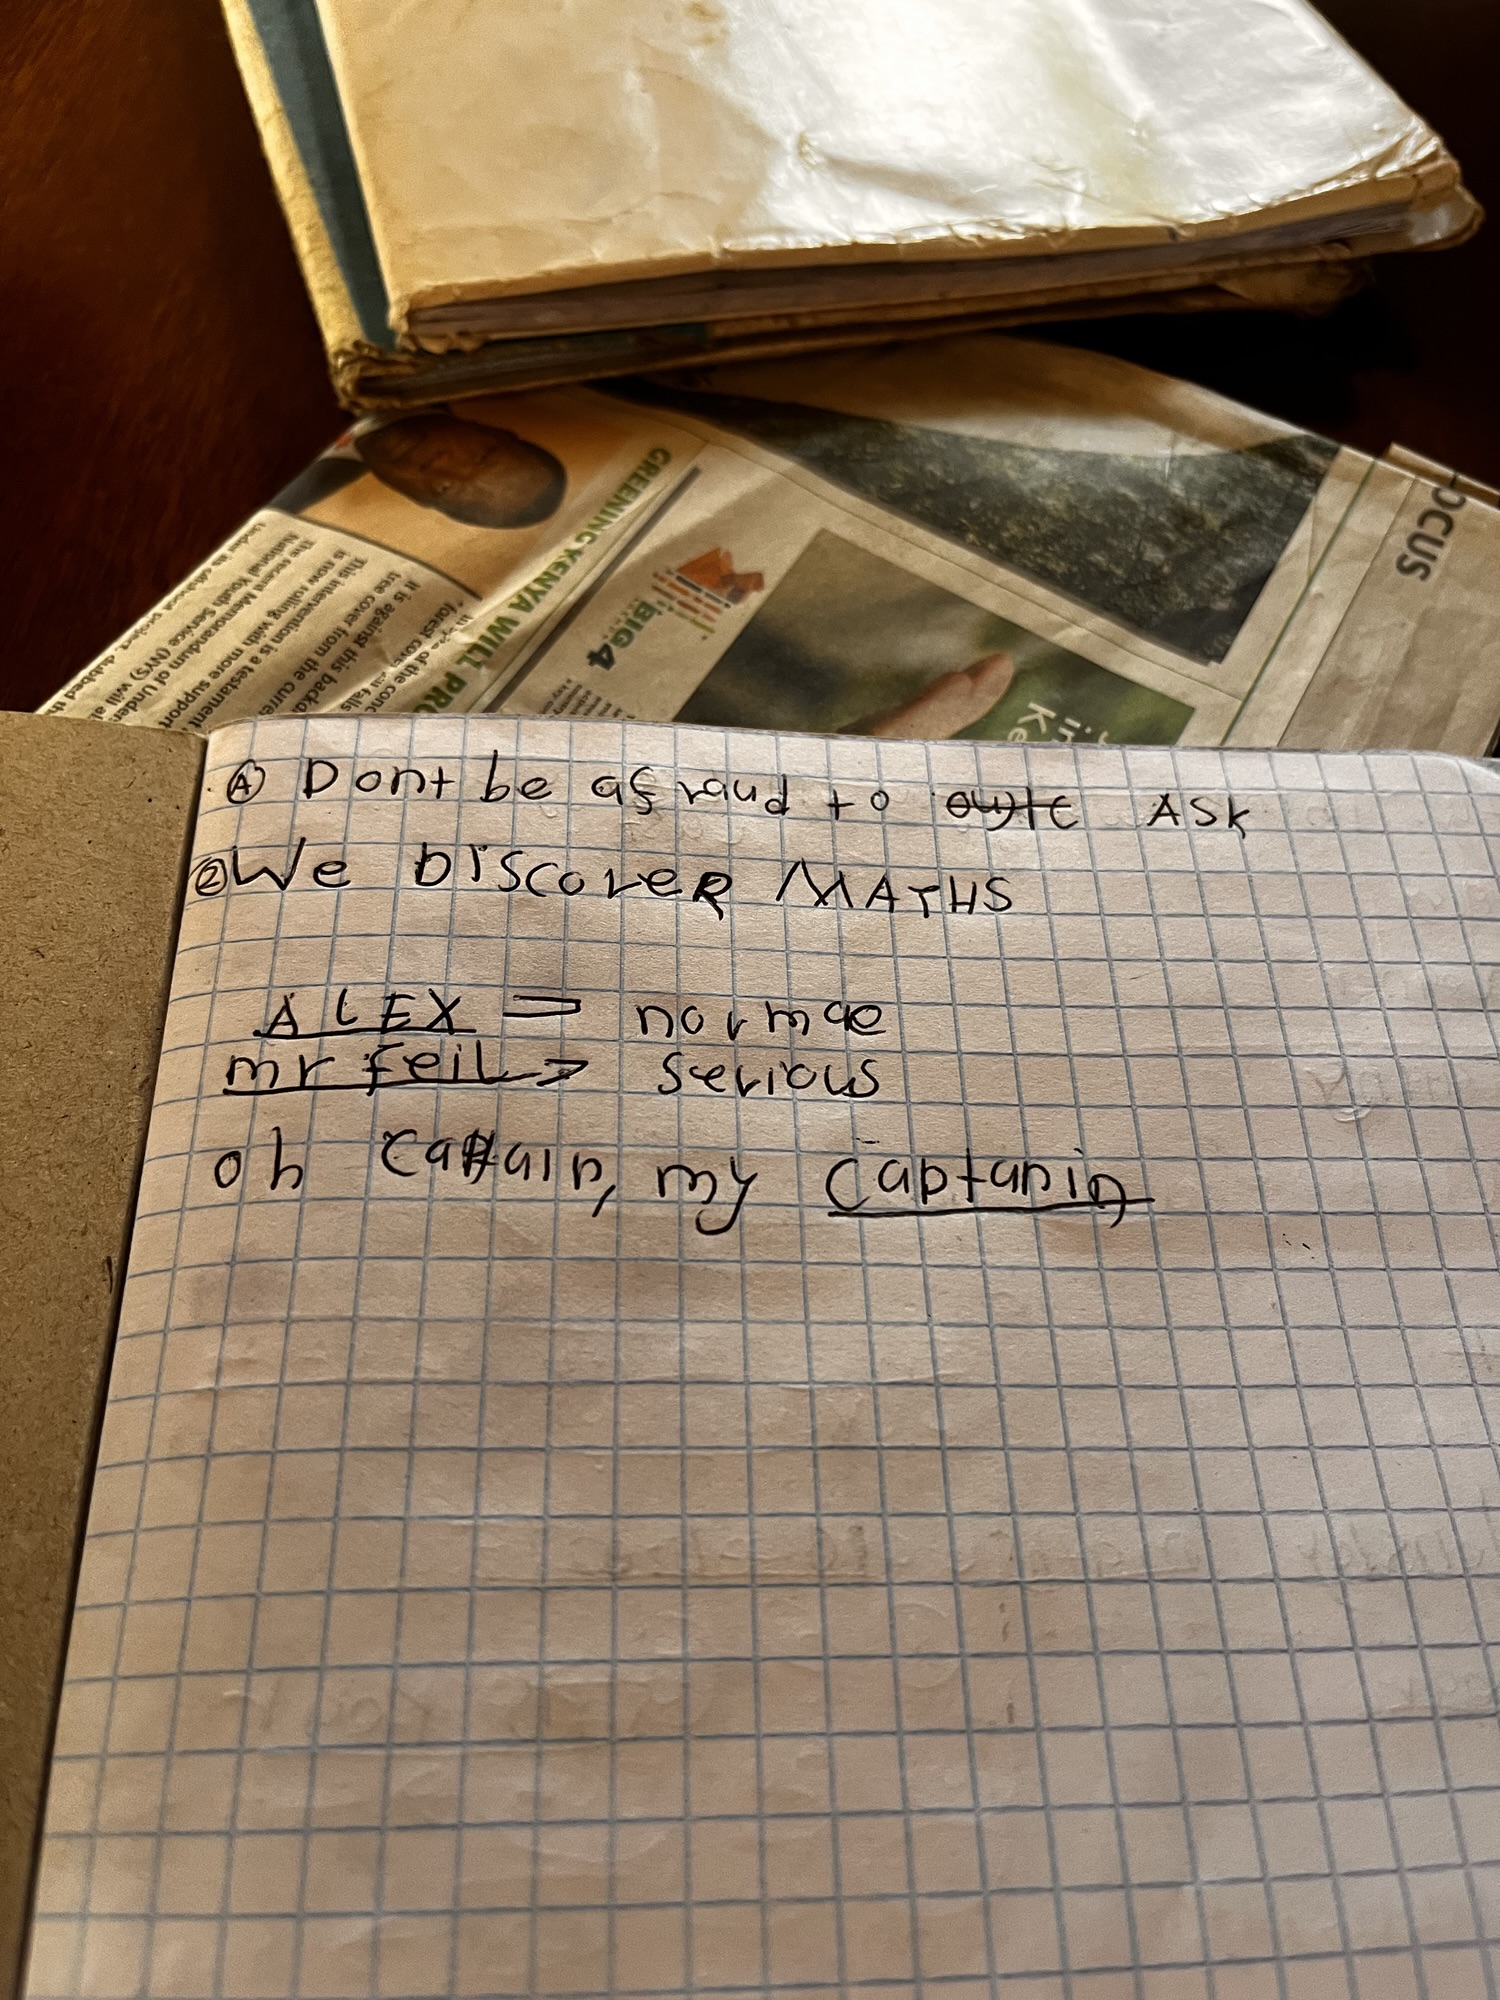 OCUS
GREENING KENYA WILL PRO
BIG4
in
Ke
In spite of the conc
"forest cover
It is against this backd
tree cover from the curre
This intervention is a testament
is now rolling with more support
The recent Memorandum of Under
National Youth Service (NYS) will al
(A) Dont be afraud to ASK
(2) We DISCOVER MATHS
ALEX = normae
mr feil => Serious
oh captain, my captanin